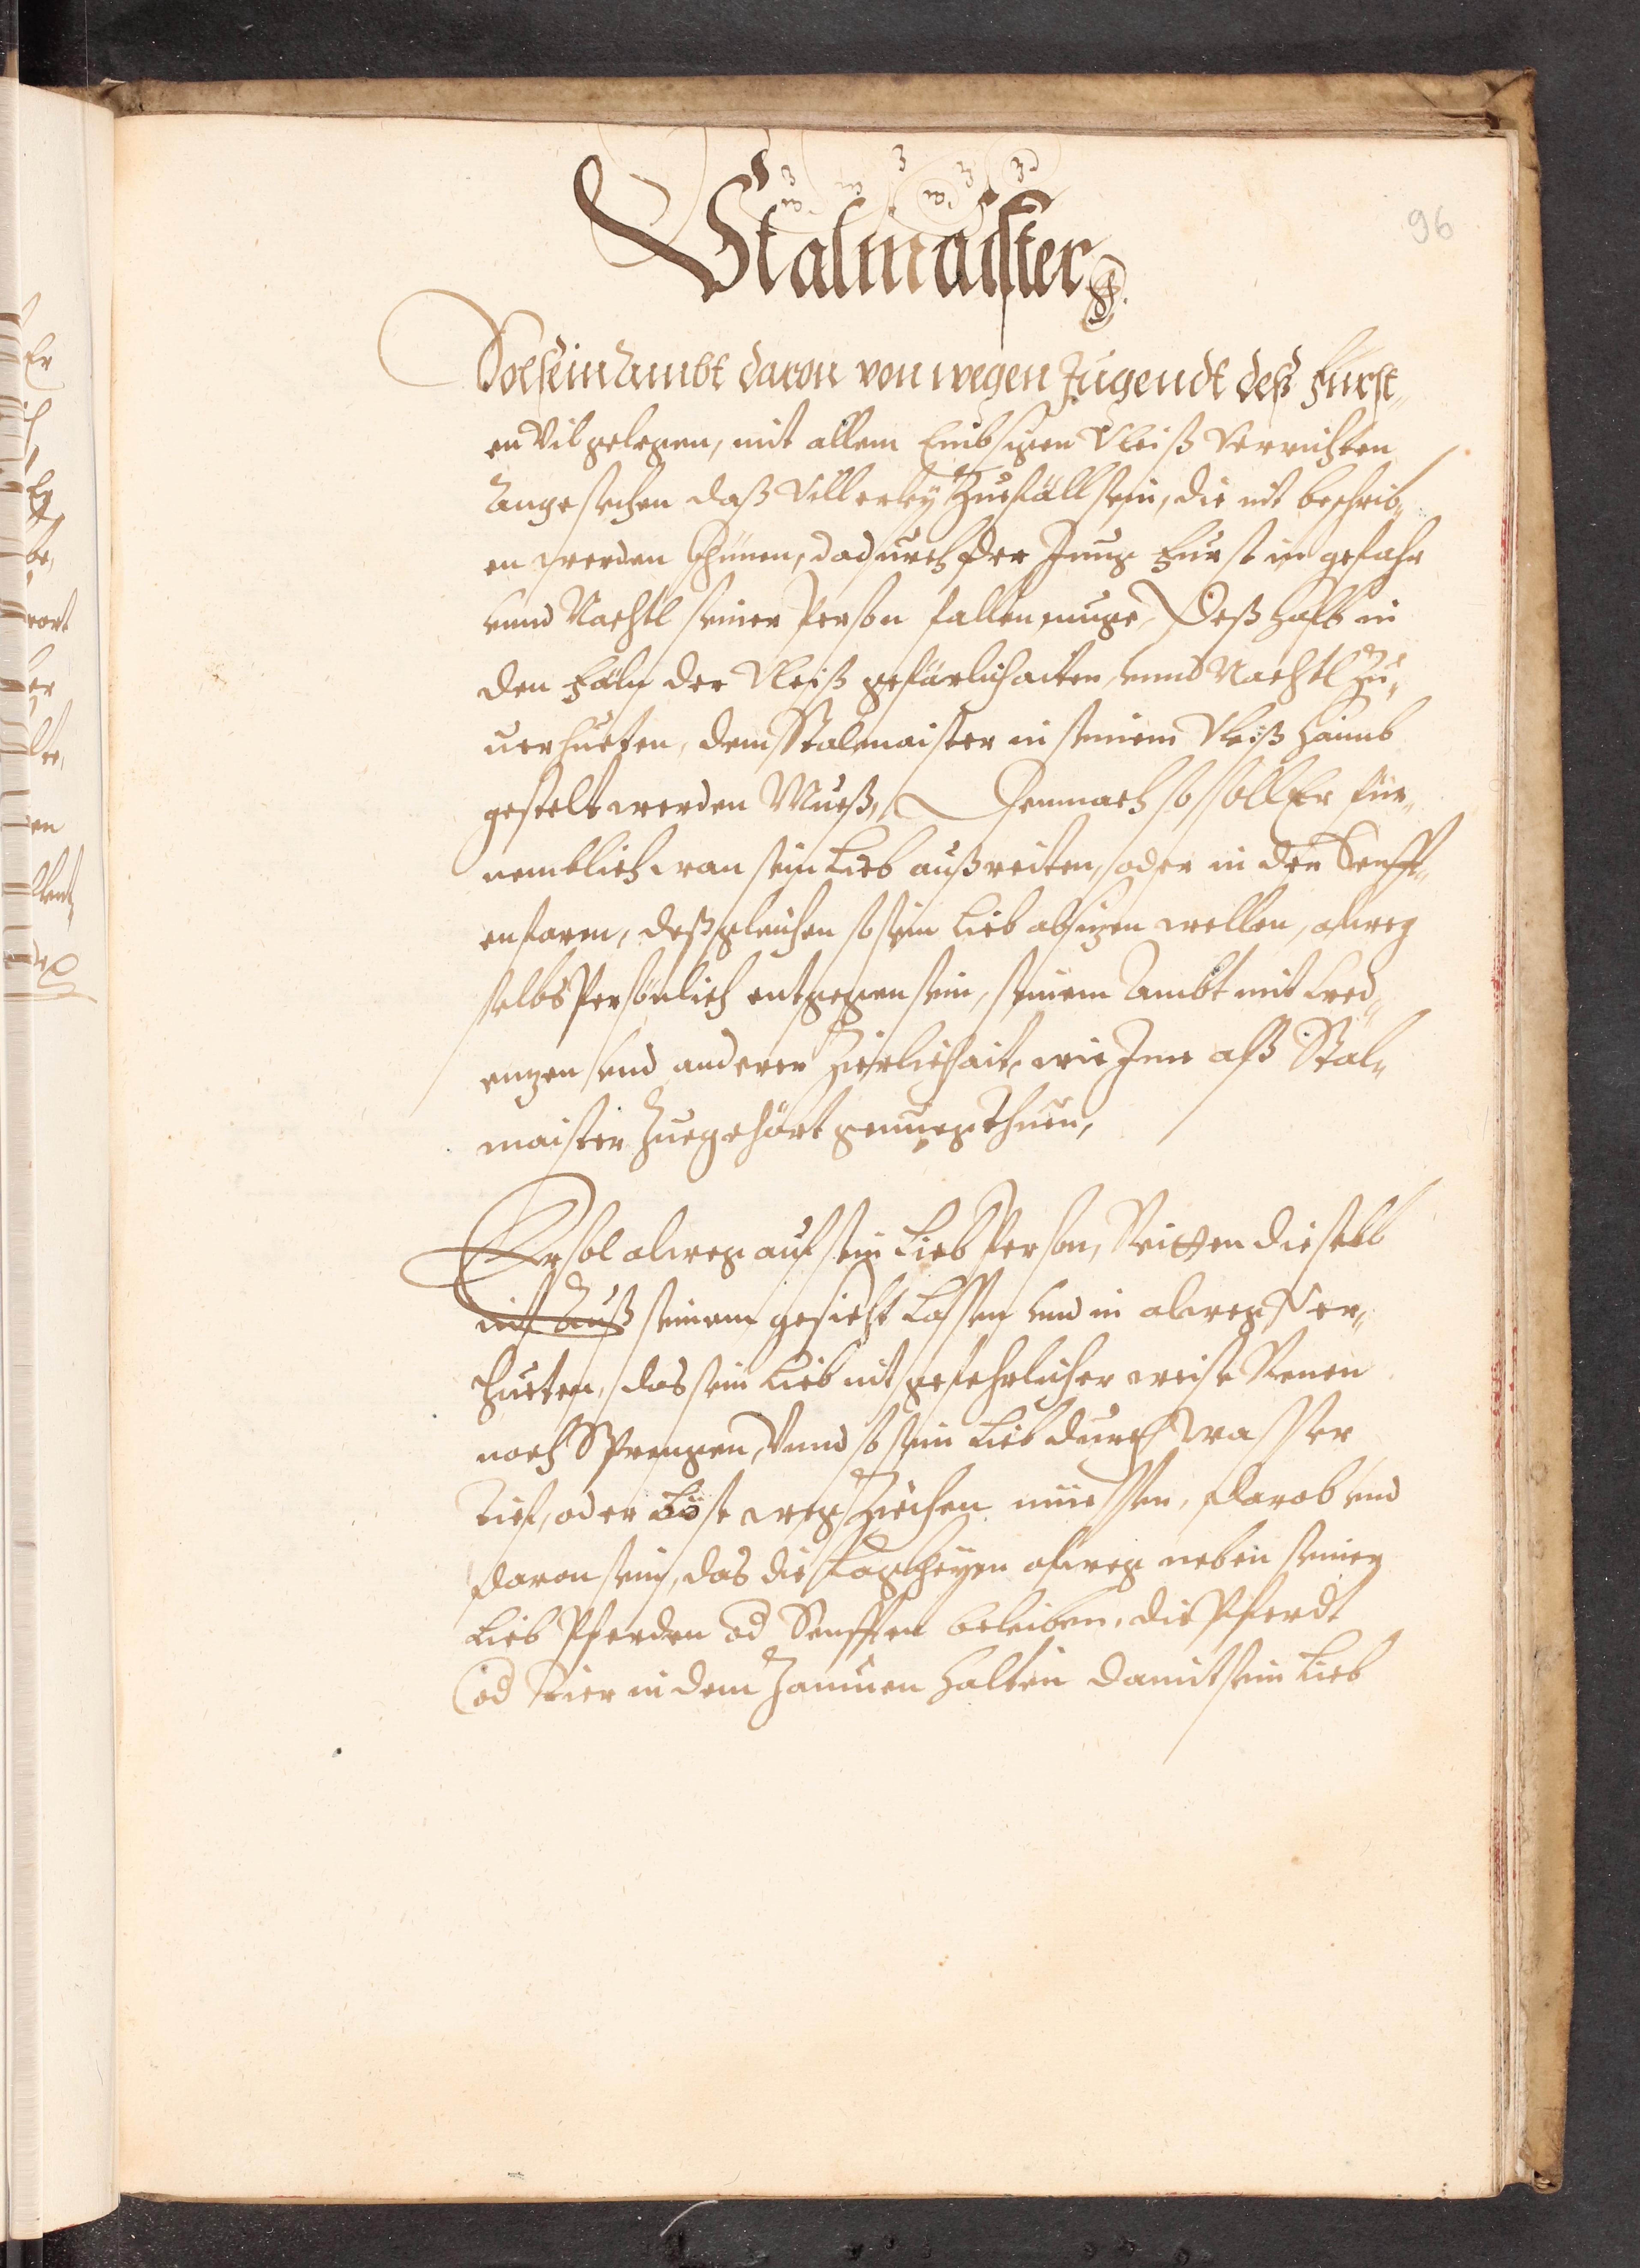 96
Stalmaister
Sol sein Ambt daron von wegen Jugendt deß Fürst„
en Vil gelegen, mit allem Embsigen Vleiß Verrichten
Angesechen daß Villerley Zuefäll sein, die nit beschrib„
en werden khünen, dadurch der Jung Fürst in gefahr
vnnd Nachtl seiner Person fallen muge, Deßhalb in
den Fäln der Vleiß gefärlichaiten, vnnd Nachtl Zu„
uerhueten, dem Stalmaister in seinem Vleiß haimb
gestelt werden Mueß, Demnach so soll Er für„
nemblich wan sein Lieb außreiten, oder in der Senfft„
en farn, deßgleichen so sein Lieb absizen wellen, alweg
selbs Persönlich entgegen sein, seinem Ambt mit Cred„
enzen vnd anderer Zierlichait, wie Jme alß Stal„
maister Zuegehört genueg thuen,
Er sol alweg auf sein Lieb Person, Reitten dieselb
nit Auß seinem gesicht Lassen vnd in alweg Ver„
hueten, das sein Lieb nit gefehrlicher weise Renen
noch Sprengen, Vnnd so sein Lieb durch Wasser
Tief, oder Böse weg Ziechen müessen, darob vnd
daron sein, das die Laggheyen alweg neben seiner
Lieb Pferden od Senfften beleiben, die Pferdt
od Tier in dem Zaumen halten damit sein Lieb